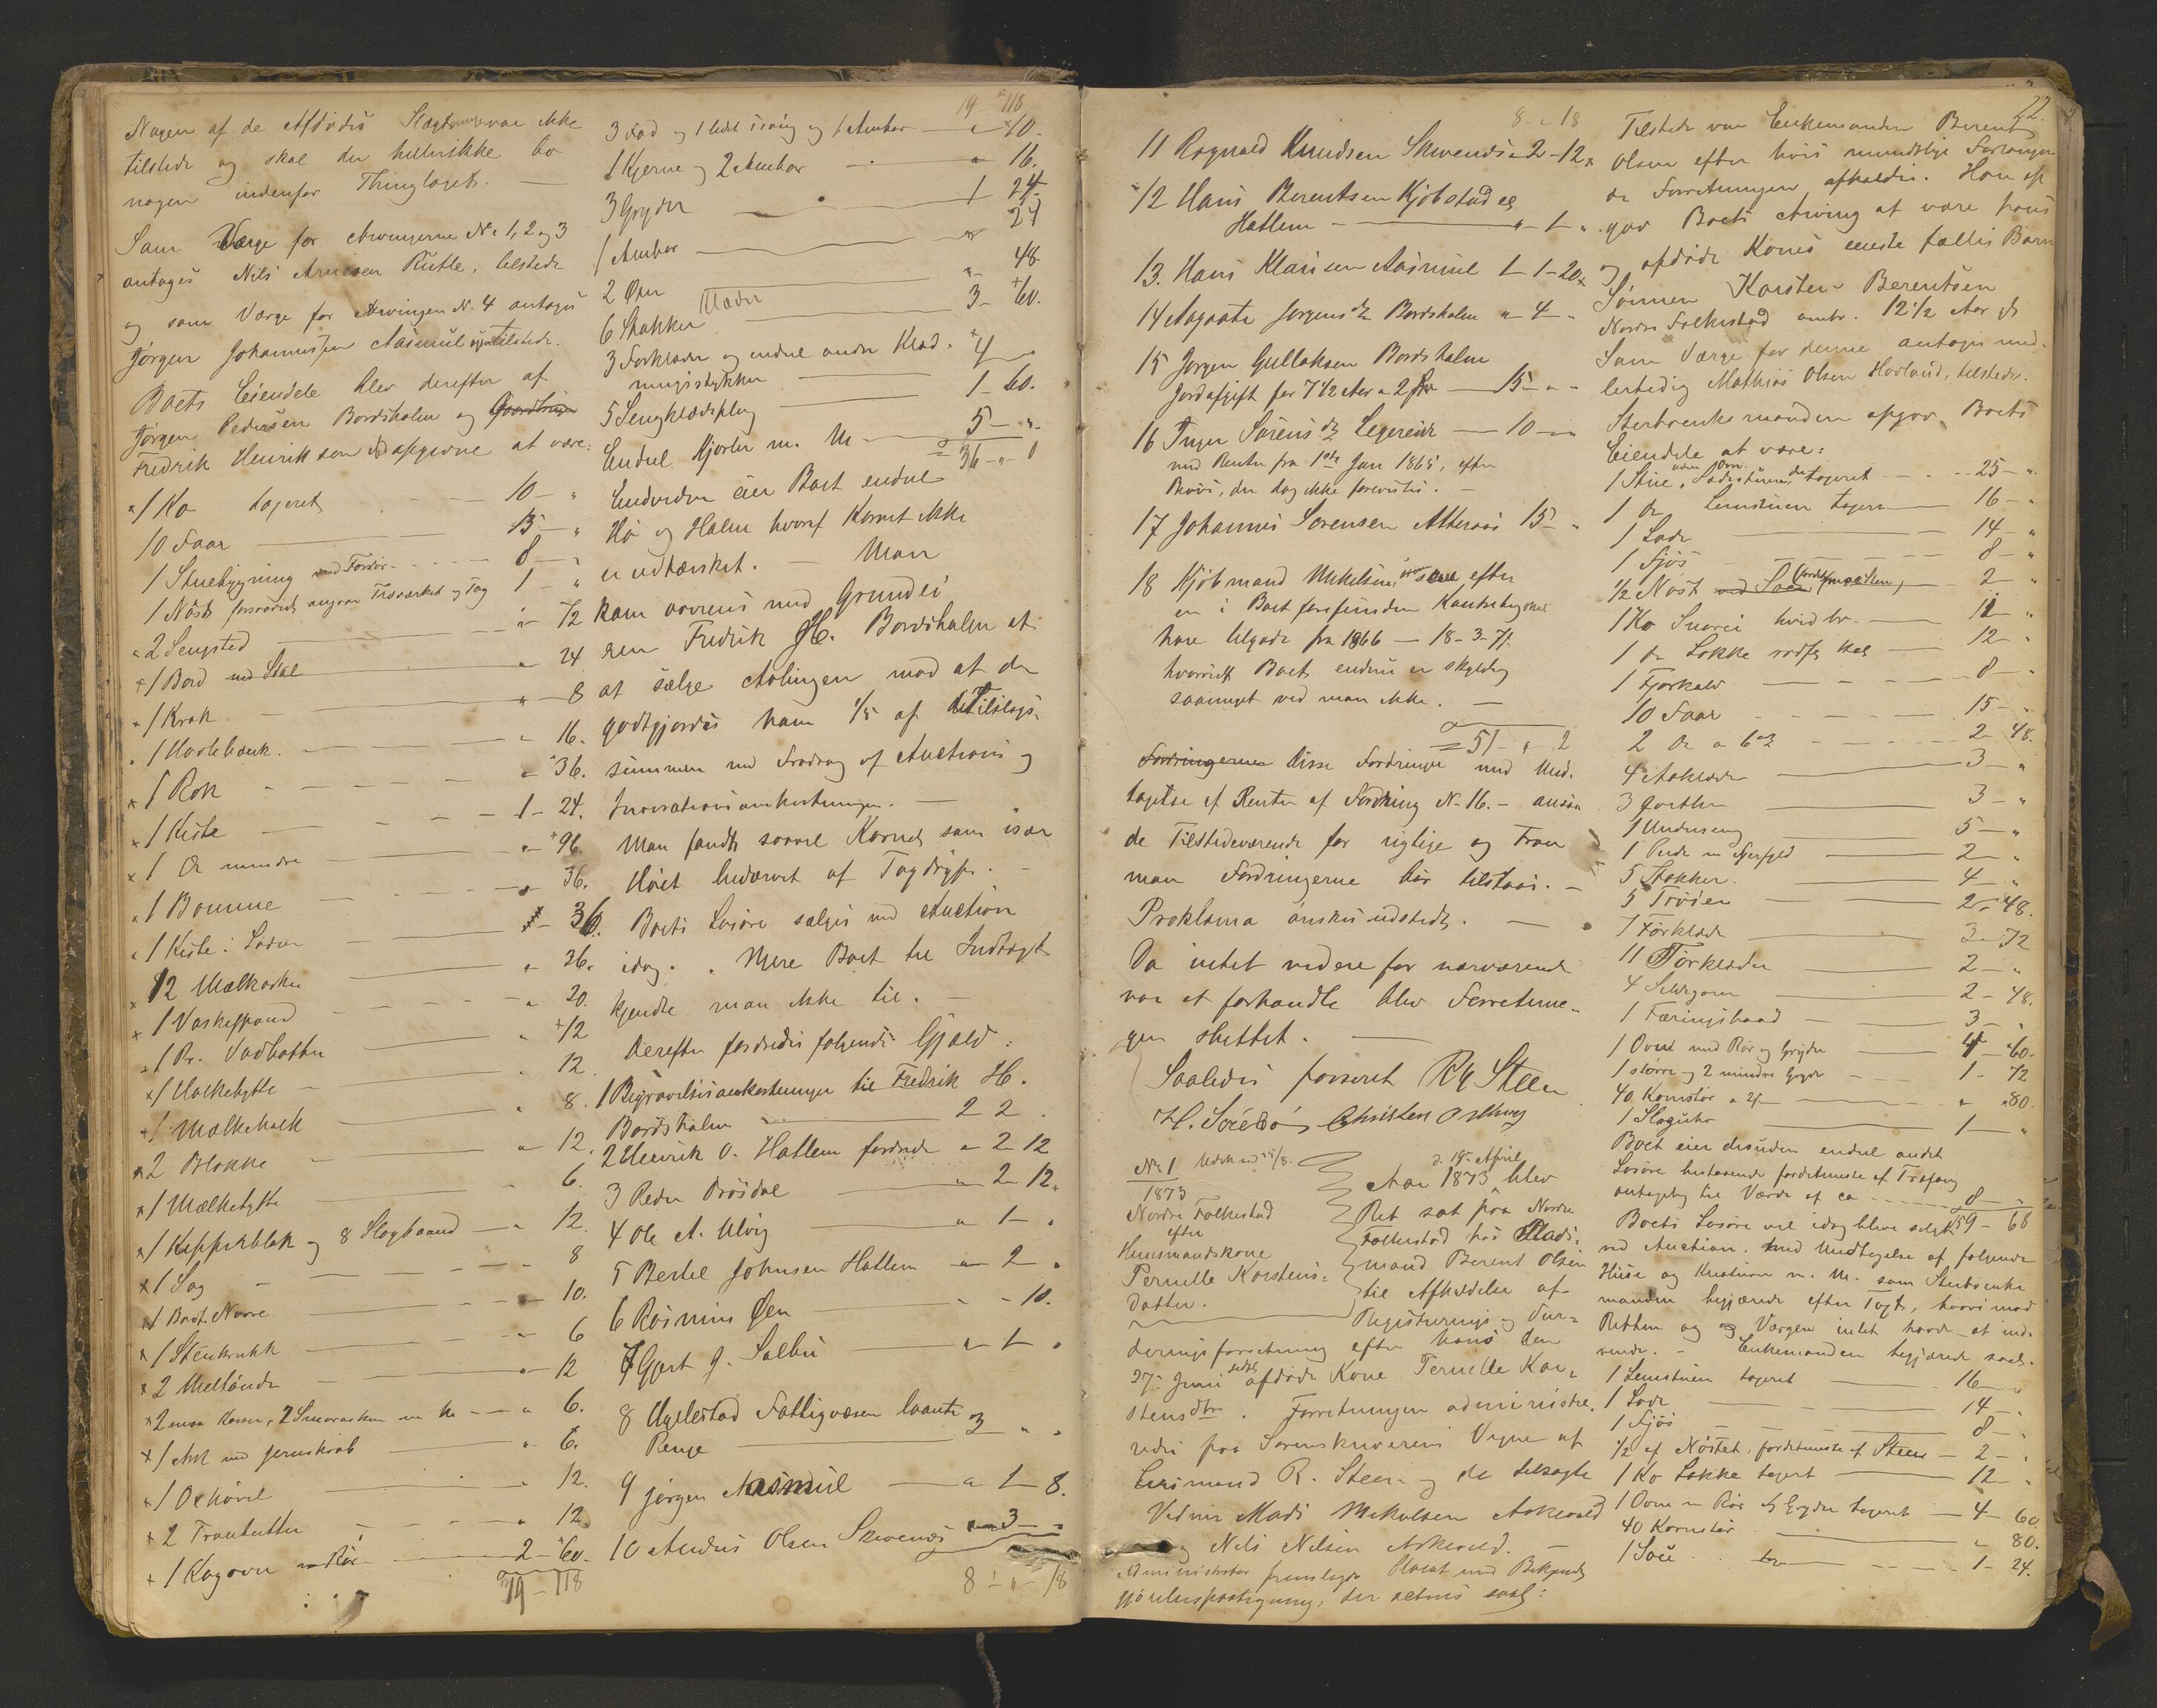 Nogen af de Afdødes Slægtninge var ikke
tilstede og skal der hellerikke bo
nogen indenfor Thinglaget. —
Som Værge for Arvingerne No 1, 2 og 3
antoges Nils Arnesen Rutle, tilstede
og som Værge for Arvingen N. 4 antoges
Jørgen Johannessen Aasmul tilstede.
Boets Eiendele blev derefter af
Jørgen Pedersen Bordsholm og
Fredrik Henriksen opgivne at være:
1 Ko taxeret 10 — "
10 Faar 15 — "
1 Stuebygning med 8 — "
1 Nøst og Tag 1 — "
2 Sengsted " 72
1 Bord med Stol " 24
1 Krak " 8
1 " 16.
1 Rok " 36.
1 Kiste 1 - 24.
1 Do mindre " 96.
1 Bomme " 36.
1 Kiste i Laden " 36.
12 Mælkeringer " 36.
1 Vaskespand " 20.
1 Pr. Vadbøtter " 12
1 Valkebytte " 12.
1 Mælkekolle " 8.
2 Blokke " 12.
1 Mælkebytte " 6.
1 og 8 Slagbaand " 12.
1 Sag " 8
1 Navre " 10.
1 Stenkrukk " 6
2 " 12
2 smaa Kasser, 2 " 6.
1 Ark med Jernskrab " 6.
1 Oxhøvel " 12.
2 Tranbøtter " 12
1 Kogovn med Rør 2 - 60.
19 - 118
19 118
3 Fad og 1 og 1 Ambar " 40.
1 Kjerne og 2 Ambar " 16.
3 Gryder 1 24.
1 Ambar " 24
2 Øxer " 48.
Klæder
6 Stakker 3 - 60.
3 Forklæder og endel andre Klæd-
ningsstykker 4
5 Sengklædsplag 1 - 60.
Endel Kjørler m. M. 5 - ".
36 - " - 0
Endvidere eier Boet endel
Hø og Halm hvoraf Kornet ikke
er udtærsket. — Man
kom overens med Grundei
eren Fredrik H. Bordsholm at
at sælge Avlingen mod at der
godtgjordes ham 1/5 af Tilslags-
summen med Fradrag af Auctions og
Incassationsomkostninger. —
Man fandt saavel Kornet som især
Høet bedærvet af Tagdryp. —
Boets Løsøre sælges ved Auction
idag. Mere Boet til Indtægt
kjendte man ikke til. —
Derefter fordredes følgende Gjæld:
1 Begravelsesomkostninger til Fredrik H.
Bordsholm 2 2.
2 Henrik O. Hatlem fordrede " 2 12
3 Peder Drøsdal " 2 12.
4 Ole A. Ulvig " 1 - "
5 Bertel Johnsen Hatlem " 2 "
6 Rasmus Øen " - 10.
7 Gjert J. Salbu " 1 "
8 Fattigvæsen laante
Penge 3 " "
9 Jørgen Aasmul " 1 - 8.
10 Anders Olsen Skivenes " 3 - "
8 - " - 18
8 - " 18
11 Rognald Knudsen Skivenes " 2 - 12.
12 Hans Berentsen Kjøbstad eg
Hatlem — " - 1 - ".
13. Hans Klausen Aasmul 1 - 1 - 20.
14 Aagaate Jørgensdtr Bordsholm " 4 - "
15 Jørgen Gullaksen Bordsholm
Jordafgift for 7 1/2 Aar a 2 15 - " "
16 Inger Sørensdtr Legereide — 10 — "
med Renter fra 1ste Jan 1865, efter
Bevis, der dog ikke forevistes. —
17 Johannes Sørensen Atteraas 15 - "
18 Kjøbmand Mikelsen, skal efter
en i Boet forefunden Kontrabog skal
have tilgode fra 1866 — 18 - 3 - 71.
hvorvidt Boet endnu er skyldig
saameget ved man ikke. —
= 51 - " - 2
Disse Fordringer med Und-
tagelse af Renter af Fordring No 16. — ansaa
de Tilstedeværende for rigtige og
man Fordringerne bør tilstaaes. —
Proklama ønskes udstedt. —
Da intet videre for nærværende
var at forhandle blev Forretnin-
gen sluttet. —
Saaledes passeret R. Steen
H. Sørebø Christen
No 1
1873
Nordre Folkestad
efter
Huusmandskone
Pernille Karstens-
datter.
d. 18de April
Aar 1873 blev
Ret sat paa Nordre
Folkestad hos Plads-
mand Berent Olsen
til Afholdelse af
Registrerings og Vur-
deringsforretning efter hans den
27de Juni sidstl afdøde Kone Pernille Kar-
stensdtr. Forretningen administre-
redes paa Sorenskriverens Vegne af
Lensmand R. Steen og de tilsagte
Vidner Mads Mikelsen Askevold
og Nils Nilsen Askevold. —
Administrator fremlagde med Bekjendt
gjørelsespaategning, der lyder saal:
22.
Tilstede var Enkemanden Berent
Olsen efter hvis mundtlige Forlangen
er Forretningen afholdes. Han op
gav Boets Arving at være hans
og afdøde Kones eneste fælles Barn
Sønnen Karsten Berentsen
Nordre Folkestad omtr. 12 1/2 Aar gl
Som Værge for denne antoges mid-
lertidig Mathias Olsen Hovland, tilstede.
Sterboenkemanden opgav Boets
Eiendele at være:
1 Stue uden Ovn taxeret 25 - ".
1 do Lemstuen taxeret 16 - "
1 Lade 14 - "
1 Fjøs 8 - "
1/2 Nøst 2 - "
1 Ko Snarei hvid br. 12 "
1 do Lokke 12 - "
1 Fjorkalv 8 - "
10 Faar 15 - "
2 do a 2 - 48.
4 Aaklæder 3 - "
3 3 - "
1 Underseng 5 - "
1 2 - "
5 Stakker. 4 - "
5 Trøier 2 - 48.
7 Forklæde 3 - 72
11 Tørklæder 2 - "
4 Sildgarn 2 - 48.
1 Færingsbaad 3 - "
1 Ovn med Rør og Gryder 4 - 60.
1 større og 2 mindre Gryder 1 - 72
40 Kornstør a 2 " 80.
1 Slaguhr 1 - "
Boet eier desuden endel andet
Løsøre bestaaende fordetmeste af Træfang
antagelig til Værdi af ca 8 - "
159 - 68
Boets Løsøre vil idag blive solgt
ved Auction, med Undtagelse af følgende
Huse og Kreaturer m. M. som Sterboenke
manden begjærede efter Taxt, hvorimod
Retten og Værgen intet havde at ind-
vende. — Enkemanden begjærede saal.
1 Lemstuen taxeret 16 - "
1 Lade 14 - "
1 Fjøs 8 - "
1/2 af Nøstet, fordetmeste af Steen — 2 - "
1 Ko Lokke taxeret 12 "
1 Ovn m Rør og Gryder taxeret — 4 - 60
40 Kornstør " 80.
1 Sau 1 - 24.